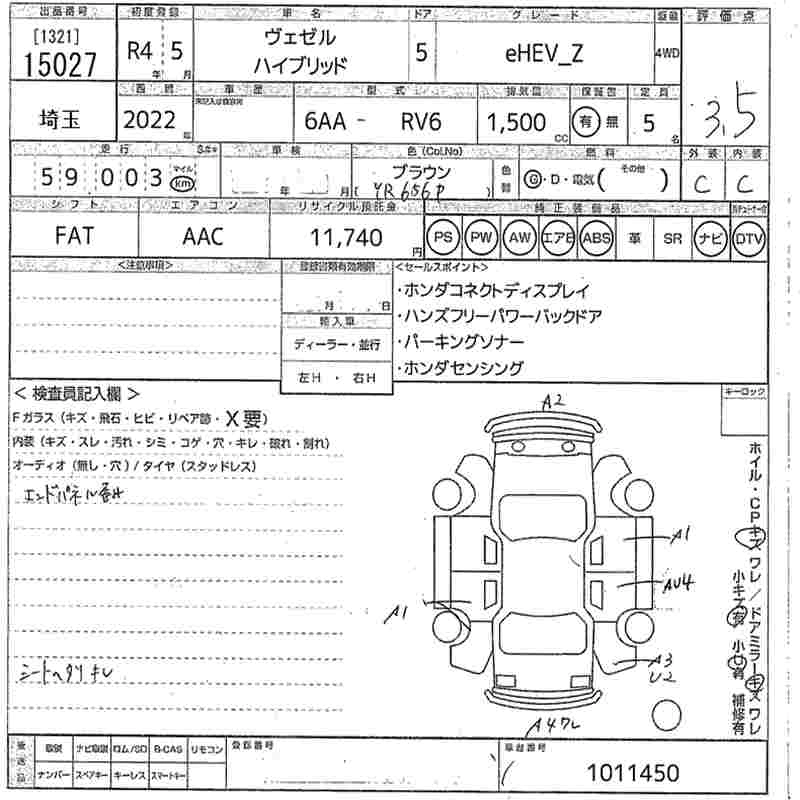 出品番号 初度登録 車名 ドア グレード 駆動 評価点
[1321]
15027 R4 5 ヴェゼル
ハイブリッド 5 eHEV_Z 4WD
年 月
3.5
西暦 車歴 型式 排気量 保証書 定員
埼玉 2022 年 6AA - RV6 1,500 CC 有 無 5 名
走行 車検 色(Col.No) 燃料 外装 内装
59,003 マイル km 年 月 ブラウン 色替 G・D・電気( その他 ) C C
YR656P
シフト エアコン リサイクル預託金 純正装備品
FAT AAC 11,740 円 PS PW AW エアB ABS 革 SR ナビ DTV
<注意事項> 登録書類有効期限 <セールスポイント>
月 日
・ホンダコネクトディスプレイ
輸入車
・ハンズフリーパワーバックドア
ディーラー・並行
・パーキングソナー
左H ・ 右H
・ホンダセンシング
< 検査員記入欄 >
キーロック
Fガラス (キズ・飛石・ヒビ・リペア跡・X要)
内装 (キズ・スレ・汚れ・シミ・コゲ・穴・キレ・破れ・割れ)
オーディオ (無し・穴) / タイヤ (スタッドレス)
エンドパネル
A2
A1
AU4
A1
A3
U2
A4ワレ
ホイル・CPキズ ワレ / ドアミラーキズ ワレ
小キズ有 小U有 補修有
シートヘタリ キレ
取説 ナビ取説 ロム/SD B-CAS リモコン 登録番号 車台番号
ナンバー スペアキー キーレス スマートキー
1011450